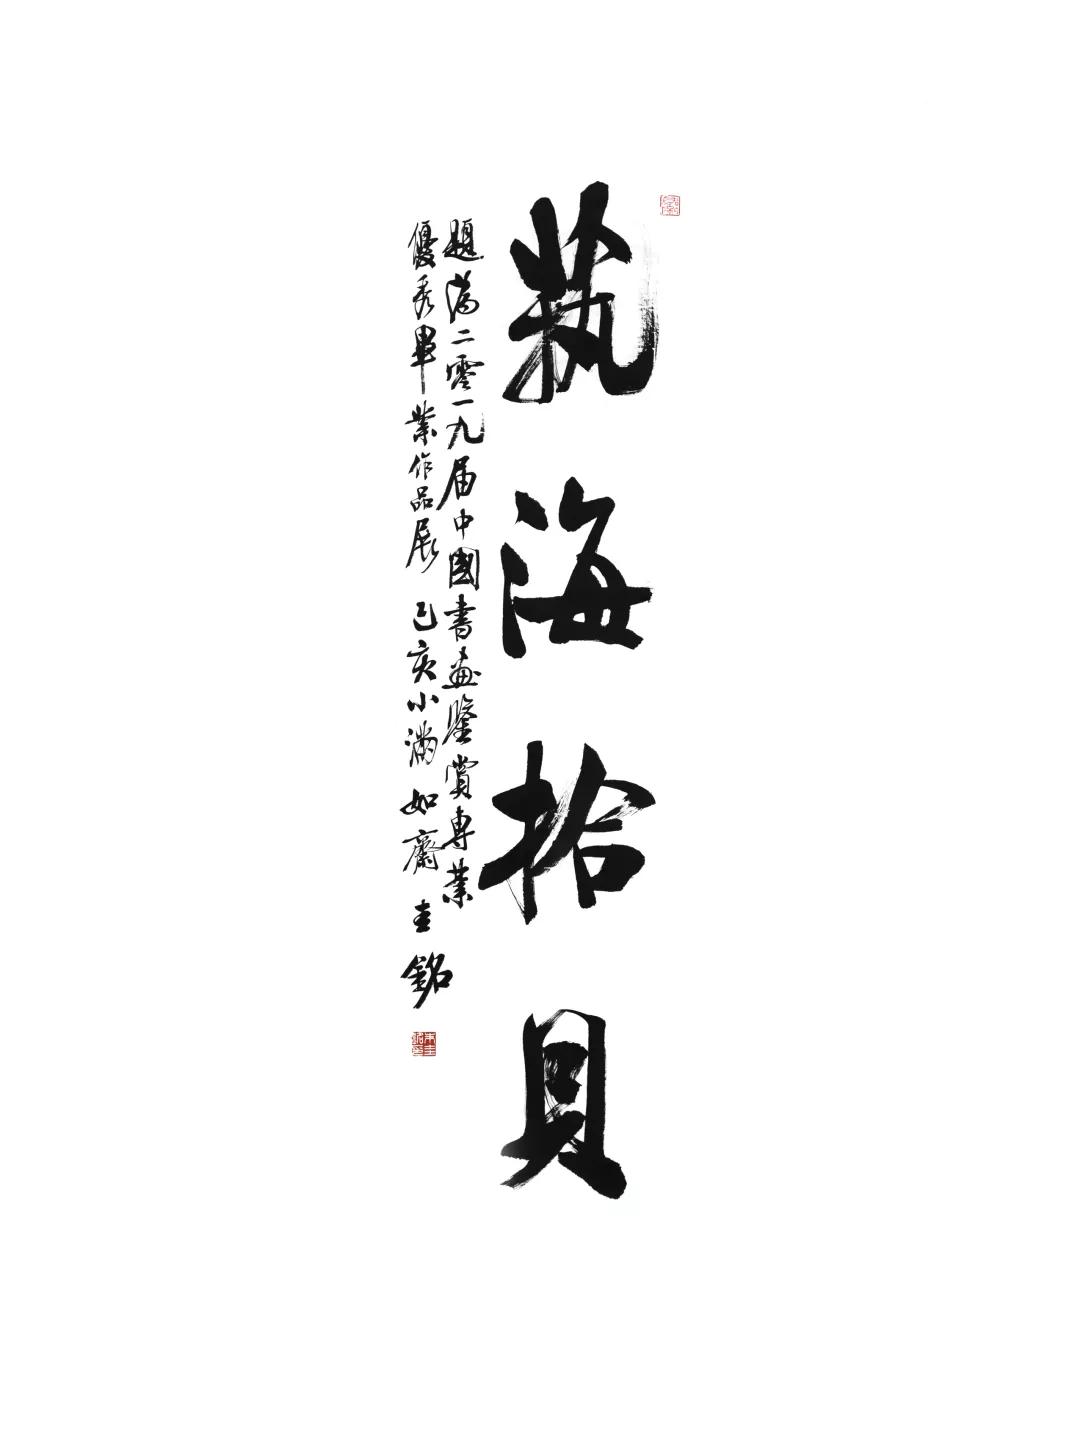 蓺海拾貝
題為二零一九届中國書画鑒賞專業
優秀畢業作品展 己亥小滿 如齋 圭銘